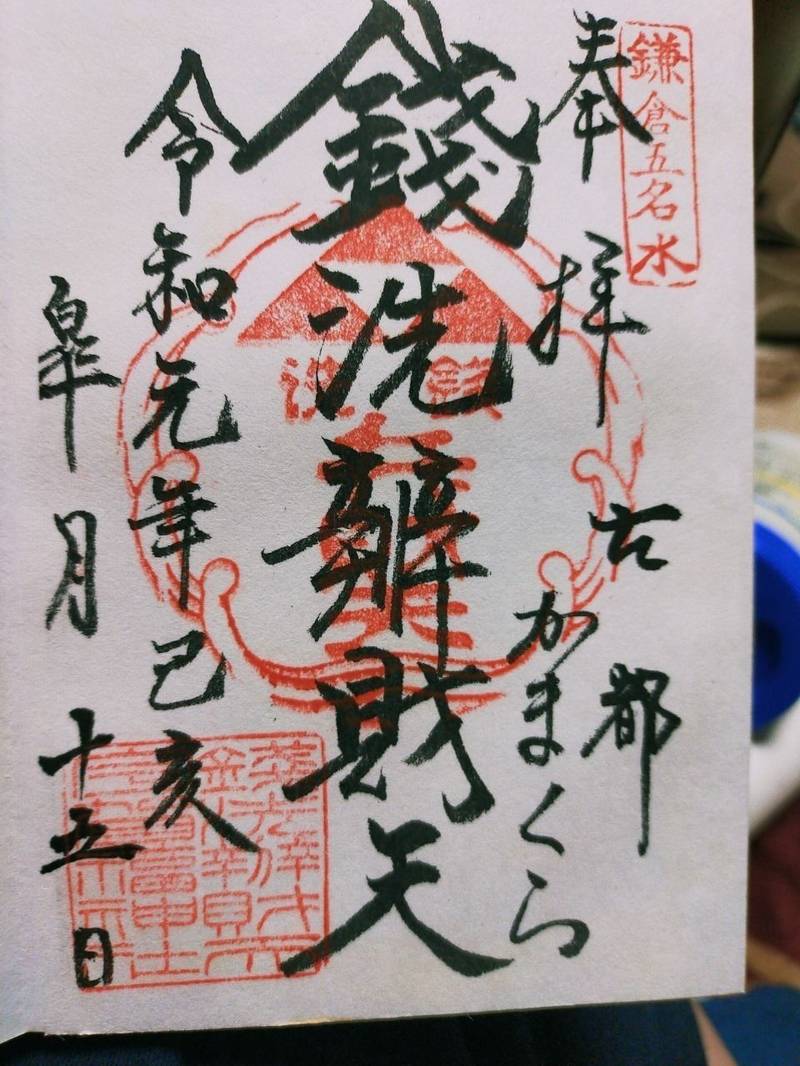 鎌倉五名水
奉拝
古都
かまくら
錢洗辨財天
令和元年己亥
皐月
十五日